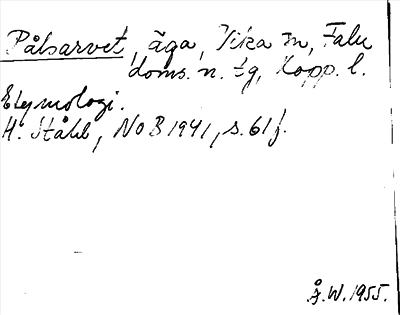 Pålsarvet, äga, Vika sn, Falu
doms. n. tg, Kopp. l.
Etymologi.
H. Ståhl, NoB 1941, s. 61 f.
Å.W. 1955.